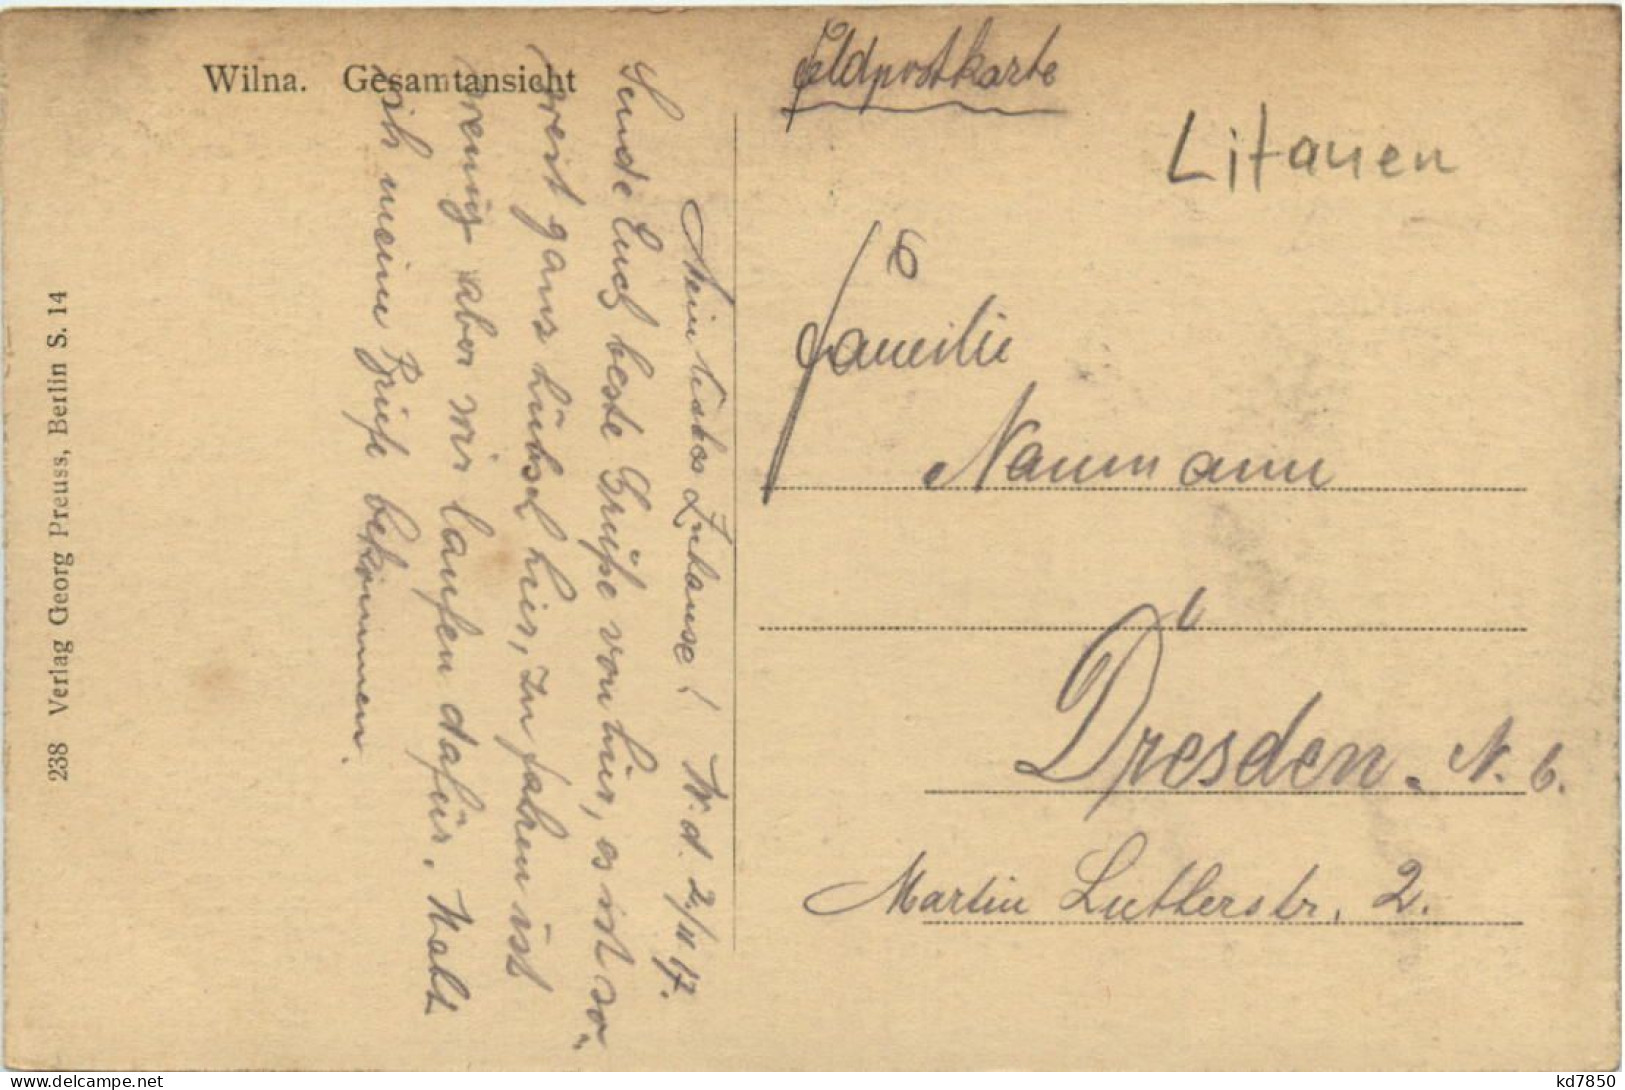 Wilna. Gesamtansicht
Feldpostkarte
Litauen
Familie
Naumann
Dresden. N. 6.
Martin Lutherstr. 2.
Mein liebes Zuhause! W. d. 2/11 17.
Sende Euch beste Grüße von hier, es ist so-
weit ganz hübsch hier, zu fahren ist
wenig aber wir laufen dafür. Habt
ihr meine Briefe bekommen.
238 Verlag Georg Preuss, Berlin S. 14
kd7850